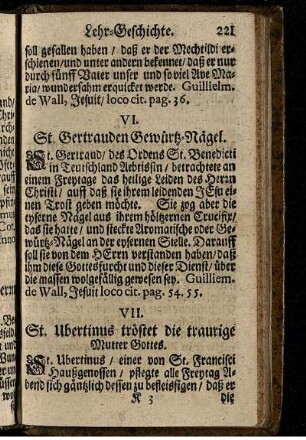 Lehr-Geschichte. 221
soll gefallen haben / daß er der Mechtildi er-
schienen / und unter andern bekennet / daß er nur
durch fünff Vater unser und so viel Ave Ma-
ria / wundersahm erquicket werde. Guillielm.
de Wall, Jesuit / loco cit. pag. 36.
VI.
St. Gertrauden Gewürtz-Nägel.
St. Gertraud / des Ordens St. Benedicti
in Teutschland Aebtissin / betrachtete an
einem Freytage das heilige Leiden des Herrn
Christi / auff daß sie ihrem leidenden JEsu ei-
nen Trost geben möchte. Sie zog aber die
eyserne Nägel aus ihrem höltzernen Crucifix /
das sie hatte / und steckte Aromatische oder Ge-
würtz-Nägel an der eysernen Stelle. Darauff
soll sie von dem HErrn verstanden haben / daß
ihm diese Gottesfurcht und dieser Dienst / über
die massen wolgefällig gewesen sey. Guilliem.
de Wall, Jesuit loco cit. pag. 54. 55.
VII.
St. Ubertinus tröstet die traurige
Mutter Gottes.
St. Ubertinus / einer von St. Francisci
Haußgenossen / pflegte alle Freytag A-
bend sich gäntzlich dessen zu befleissigen / daß er
K 3 die